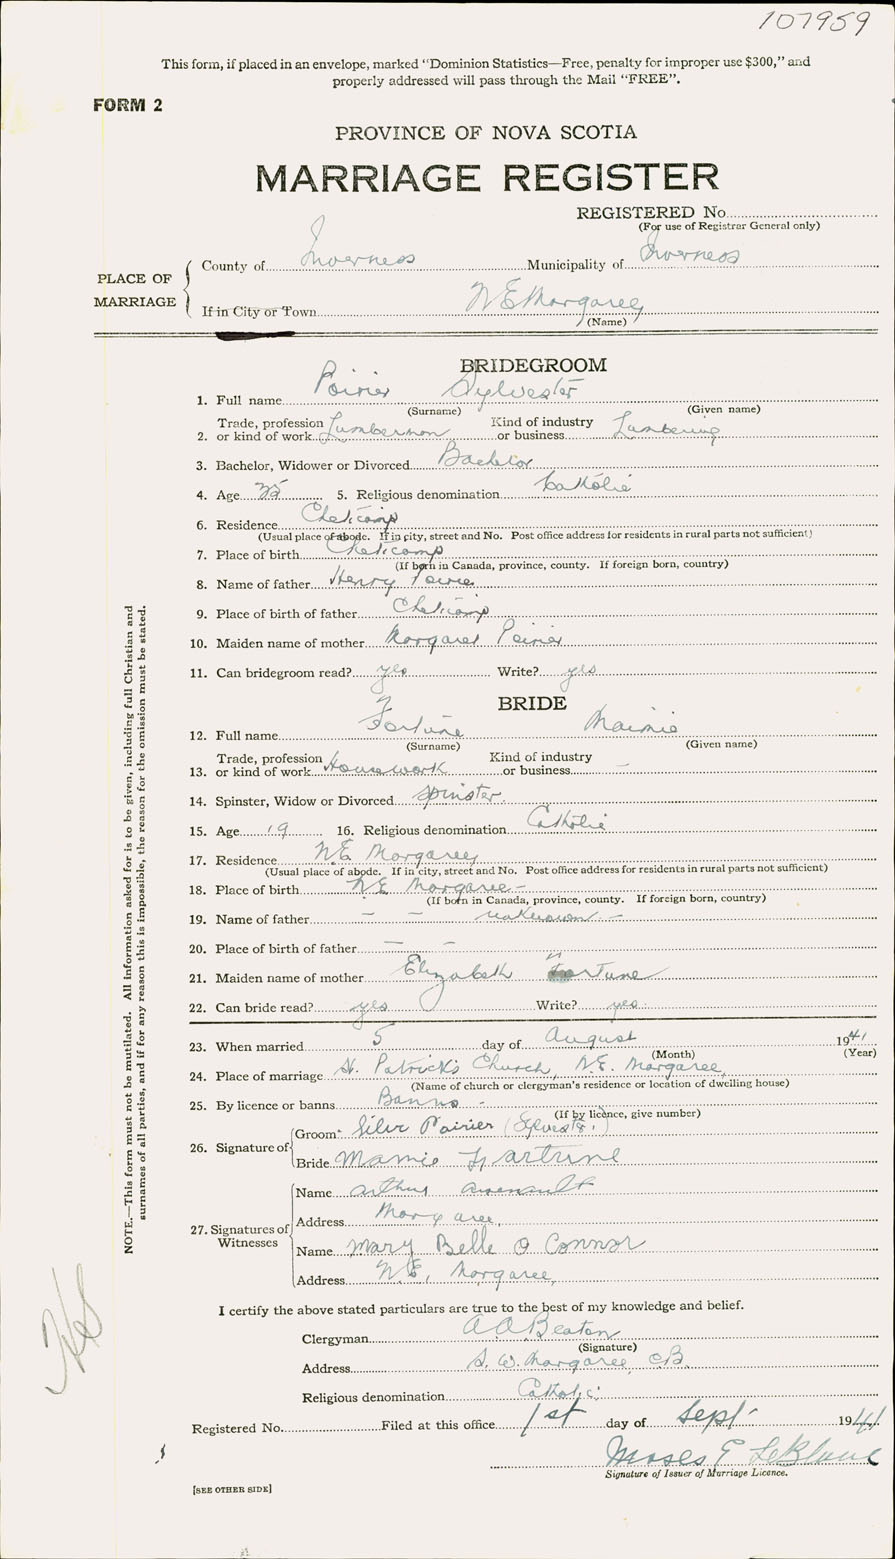 107959
This form, if placed in an envelope, marked "Dominion Statistics—Free, penalty for improper use $300," and
properly addressed will pass through the Mail "FREE".
FORM 2
PROVINCE OF NOVA SCOTIA
MARRIAGE REGISTER
REGISTERED No.
(For use of Registrar General only)
PLACE OF MARRIAGE
County of Inverness Municipality of Inverness
If in City or Town N E Margaree
(Name)
BRIDEGROOM
1. Full name Poirier Sylvester
(Surname) (Given name)
2. Trade, profession or kind of work Lumberman Kind of industry or business Lumbering
3. Bachelor, Widower or Divorced Bachelor
4. Age 35 5. Religious denomination Catholic
6. Residence Cheticamp
(Usual place of abode. If in city, street and No. Post office address for residents in rural parts not sufficient)
7. Place of birth Cheticamp
(If born in Canada, province, county. If foreign born, country)
8. Name of father Henry Poirier
9. Place of birth of father Cheticamp
10. Maiden name of mother Margaret Poirier
11. Can bridegroom read? yes Write? yes
BRIDE
12. Full name Fortune Maimie
(Surname) (Given name)
13. Trade, profession or kind of work Housework Kind of industry or business —
14. Spinster, Widow or Divorced Spinster.
15. Age 19 16. Religious denomination Catholic
17. Residence N.E Margaree
(Usual place of abode. If in city, street and No. Post office address for residents in rural parts not sufficient)
18. Place of birth N E Margaree –
(If born in Canada, province, county. If foreign born, country)
19. Name of father – – unknown –
20. Place of birth of father – –
21. Maiden name of mother Elizabeth Fortune
22. Can bride read? yes Write? yes
23. When married 5 day of August 1941
(Month) (Year)
24. Place of marriage St. Patrick's Church, N.E. Margaree,
(Name of church or clergyman's residence or location of dwelling house)
25. By licence or banns Banns -
(If by licence, give number)
26. Signature of
Groom Silver Poirier (Sylvester)
Bride Mamie Fortune
27. Signatures of Witnesses
Name Arthur Arsenault
Address Margaree,
Name Mary Belle O Connor
Address N.E. Margaree,
I certify the above stated particulars are true to the best of my knowledge and belief.
Clergyman A A Beaton
(Signature)
Address S. W. Margaree, C B
Religious denomination Catholic
Registered No. Filed at this office 1st day of Sept 1941
Moses E LeBlanc
Signature of Issuer of Marriage Licence.
[SEE OTHER SIDE]
NOTE.—This form must not be mutilated. All information asked for is to be given, including full Christian and
surnames of all parties, and if for any reason this is impossible, the reason for the omission must be stated.